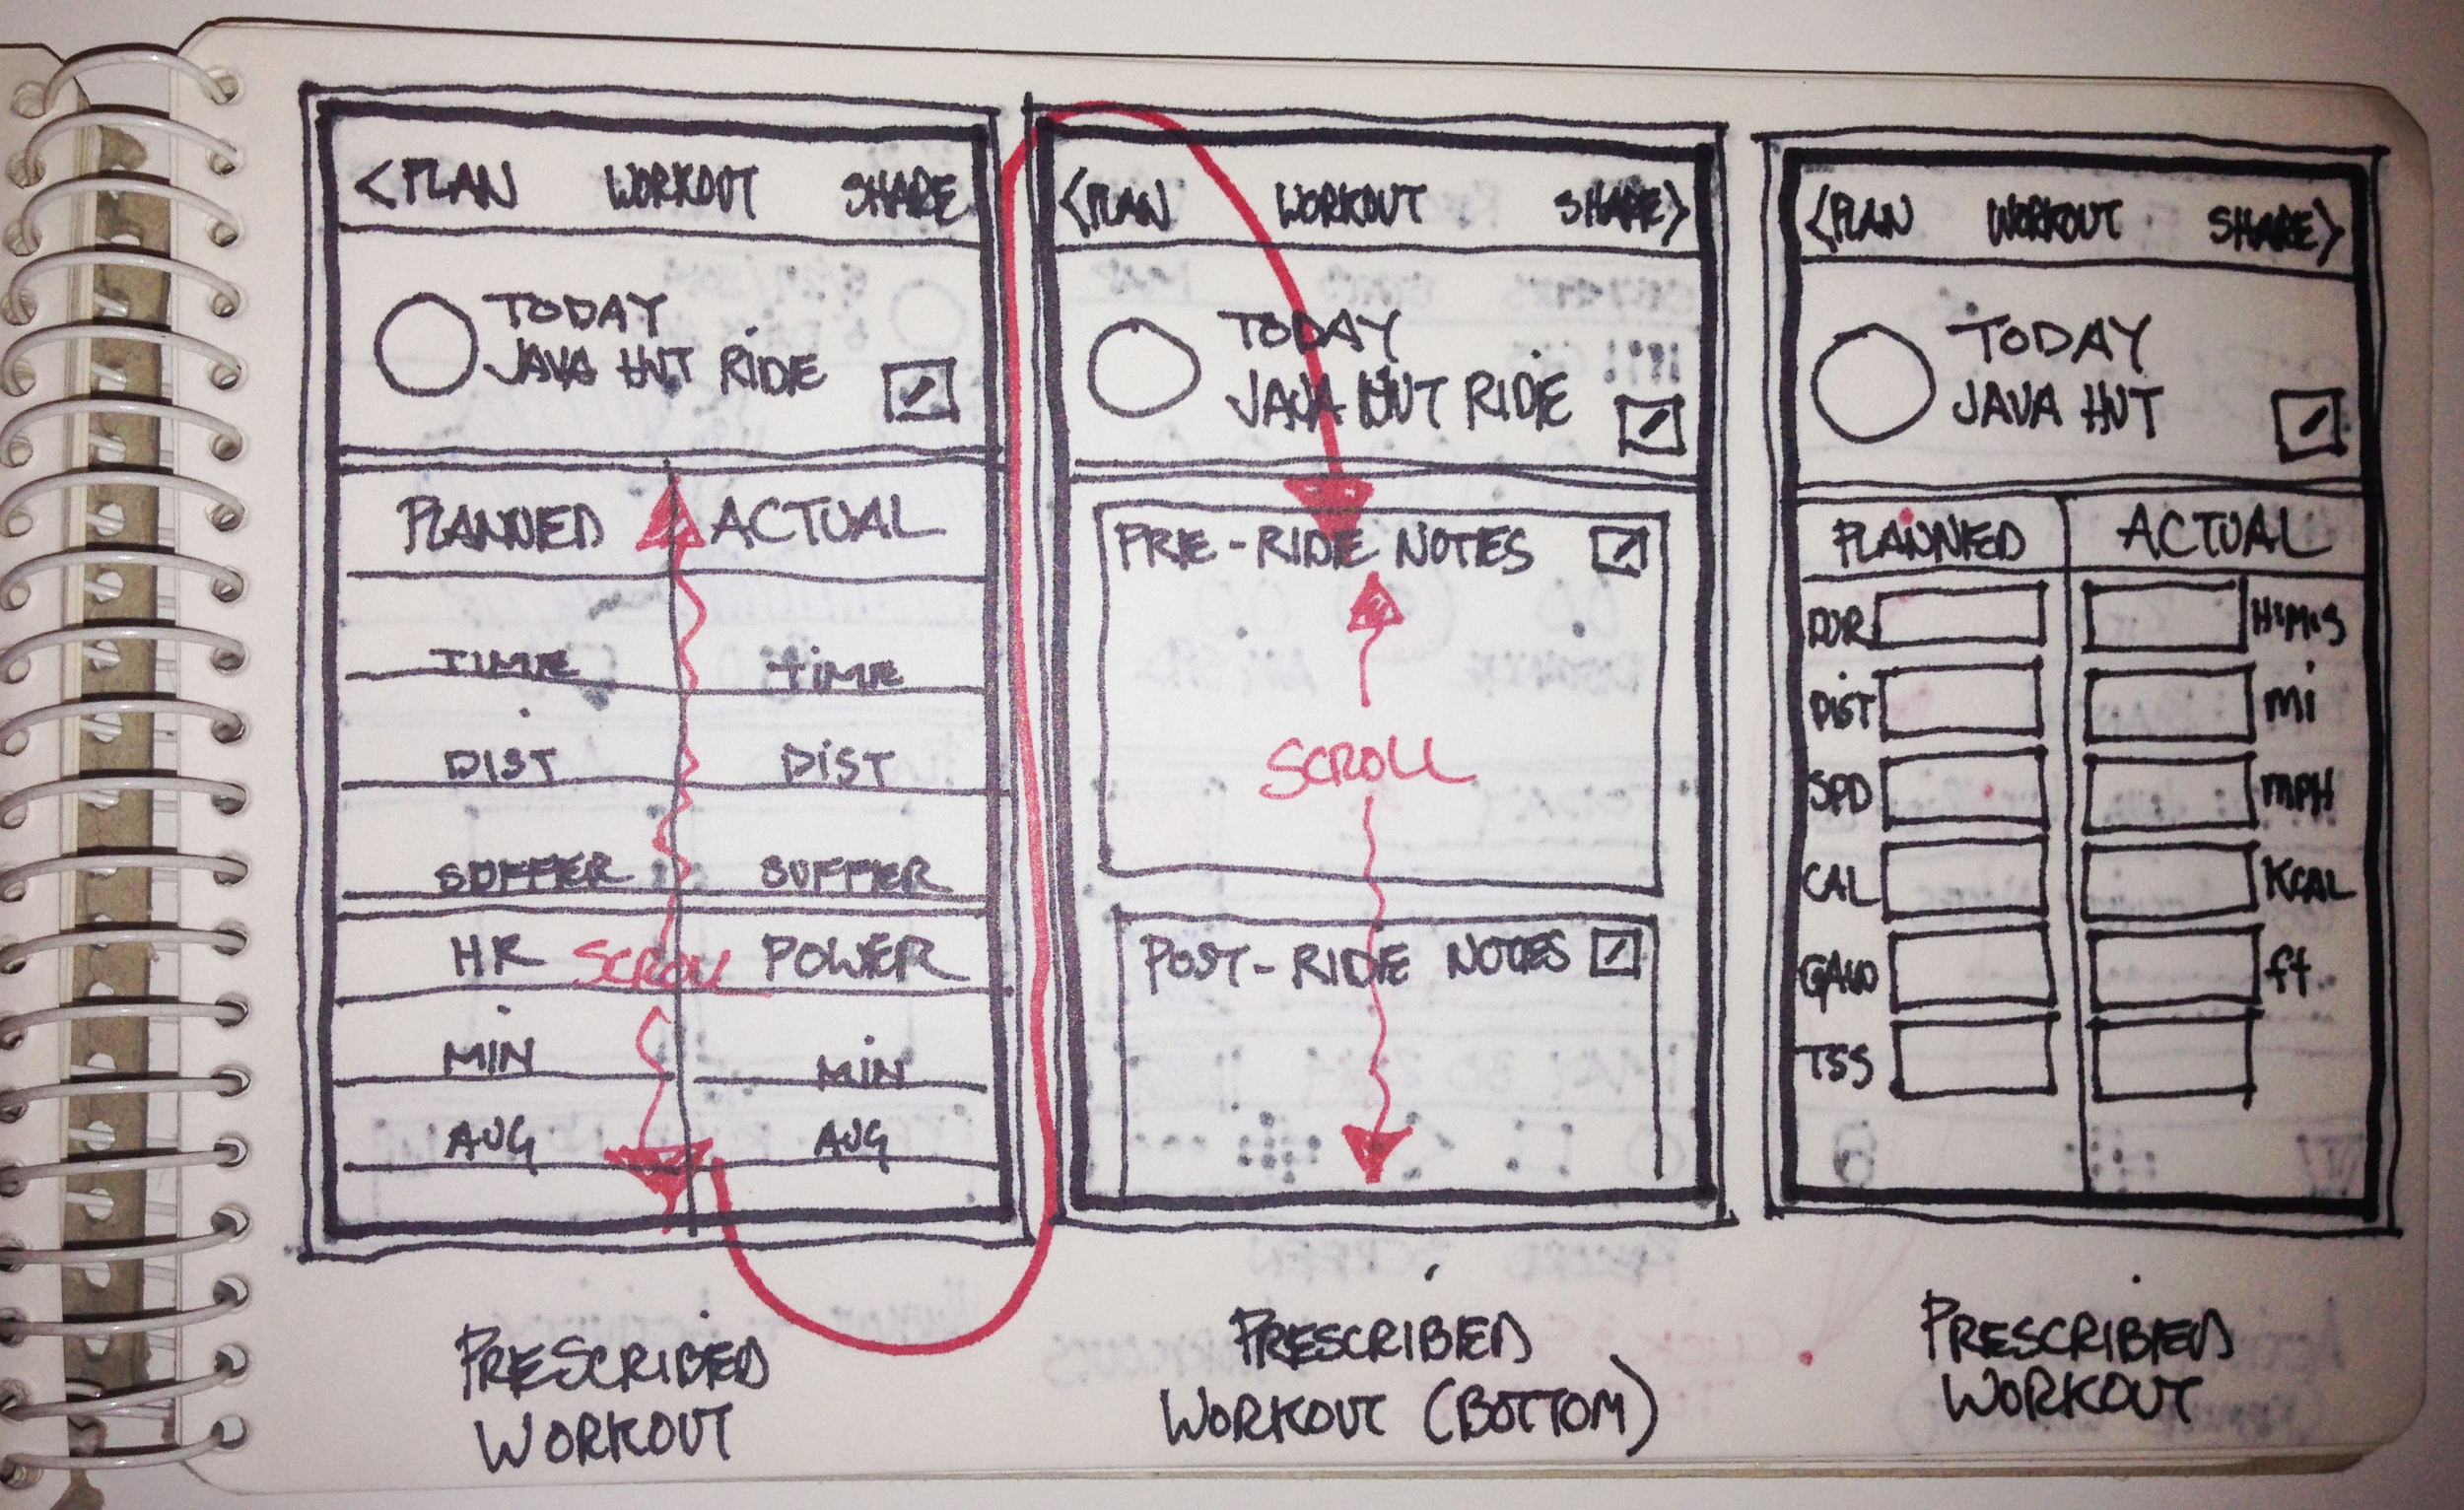 <PLAN WORKOUT SHARE
TODAY
JAVA HUT RIDE
PLANNED ACTUAL
TIME TIME
DIST DIST
SUFFER SUFFER
HR SCROLL POWER
MIN MIN
AVG AVG
PRESCRIBED
WORKOUT
<PLAN WORKOUT SHARE>
TODAY
JAVA HUT RIDE
PRE-RIDE NOTES
SCROLL
POST-RIDE NOTES
PRESCRIBED
WORKOUT (BOTTOM)
<PLAN WORKOUT SHARE>
TODAY
JAVA HUT
PLANNED ACTUAL
DUR H:M:S
DIST mi
SPD mPH
CAL KCAL
GAIN ft
TSS
PRESCRIBED
WORKOUT